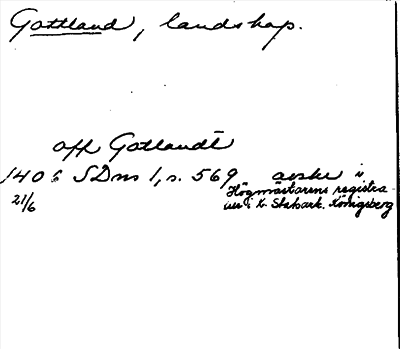 Gottland, landskap.
off Gotlandh
1408 SDns 1, s. 569 avskr i
21/6 Högmästarens registra-
ur i K. Statsark. Königsberg